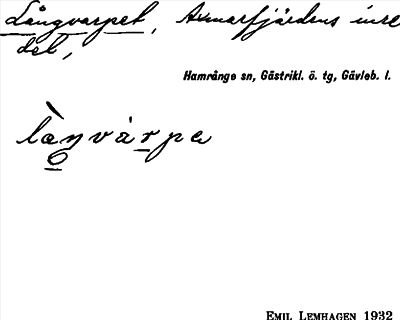 Långvarpet, Axmarfjärdens inre
del,
Hamrånge sn, Gästrikl. ö. tg, Gävleb. l.
EMIL LEMHAGEN 1932